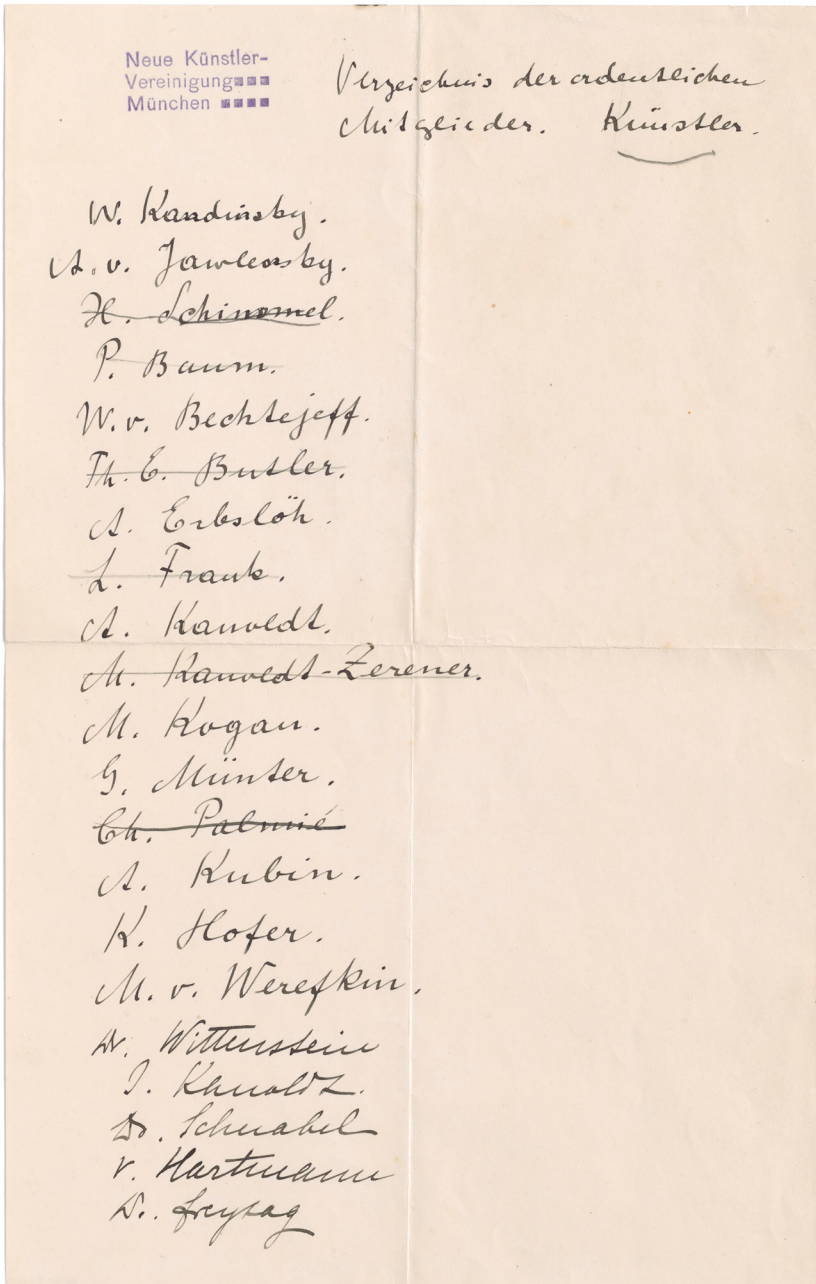 Neue Künstler-
Vereinigung
München
Verzeichnis der ordentlichen
Mitglieder. Künstler.
W. Kandinsky.
A. v. Jawlensky.
H. Schimmel.
P. Baum.
W. v. Bechtejeff.
Th. E. Butler.
A. Erbslöh.
L. Frank.
A. Kanoldt.
M. Kanoldt-Zerener.
M. Kogan.
G. Münter.
Ch. Palmié
A. Kubin.
K. Hofer.
M. v. Werefkin.
Dr. Wittenstein
J. Kanoldt.
Dr. Schnabel
v. Hartmann
Dr. Freytag